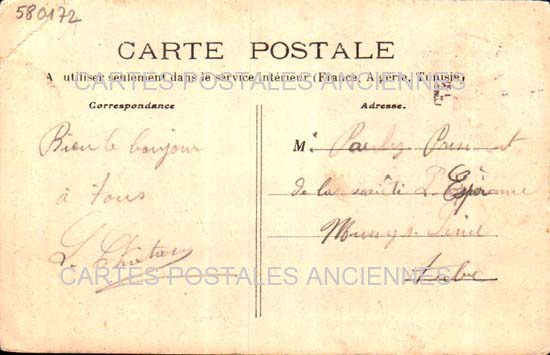 580172
CARTE POSTALE
A utiliser seulement dans le service intérieur (France, Algérie, Tunisie)
CARTES POSTALES ANCIENNES
Correspondance
Adresse.
Bien le bonjour
à tous
M.
de la société L'Espérance
Aube
CARTES POSTALES ANCIENNES